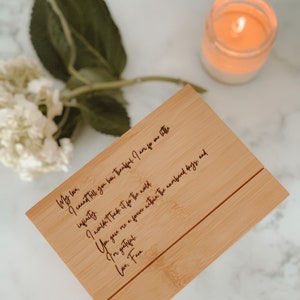 My love,
I cannot tell you how thankful I am for our little
infinity.
I wouldn't trade it for the world.
You gave me a forever within the numbered days, and
I'm grateful.
Love, Fran